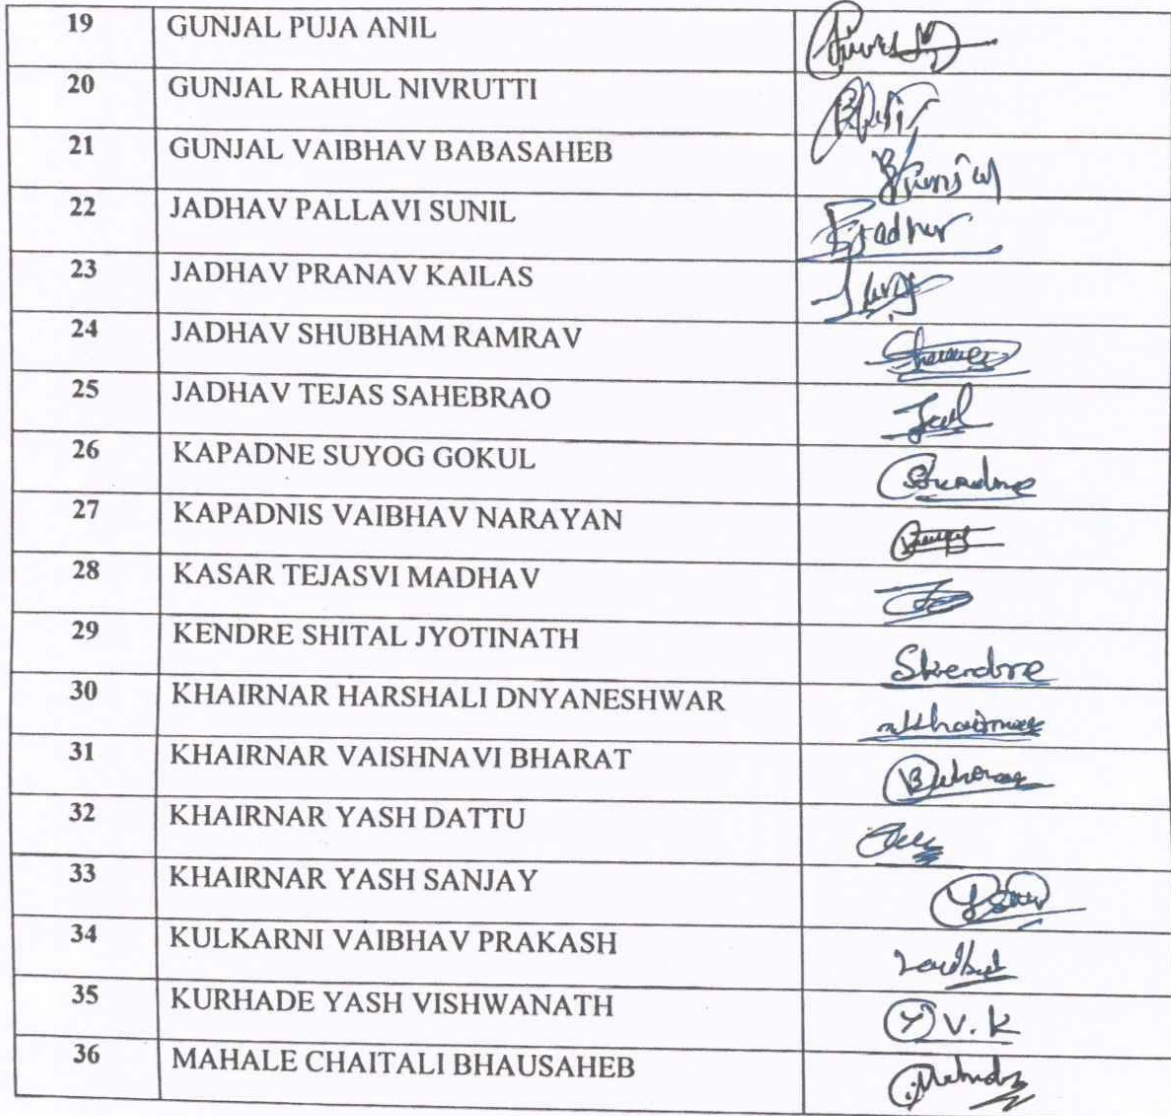 19 GUNJAL PUJA ANIL
20 GUNJAL RAHUL NIVRUTTI
21 GUNJAL VAIBHAV BABASAHEB
22 JADHAV PALLAVI SUNIL
23 JADHAV PRANAV KAILAS
24 JADHAV SHUBHAM RAMRAV
25 JADHAV TEJAS SAHEBRAO
26 KAPADNE SUYOG GOKUL
27 KAPADNIS VAIBHAV NARAYAN
28 KASAR TEJASVI MADHAV
29 KENDRE SHITAL JYOTINATH Skendre
30 KHAIRNAR HARSHALI DNYANESHWAR
31 KHAIRNAR VAISHNAVI BHARAT
32 KHAIRNAR YASH DATTU
33 KHAIRNAR YASH SANJAY
34 KULKARNI VAIBHAV PRAKASH
35 KURHADE YASH VISHWANATH Y V. K
36 MAHALE CHAITALI BHAUSAHEB